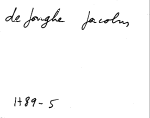 de Jonghe Jacobus
1489-5